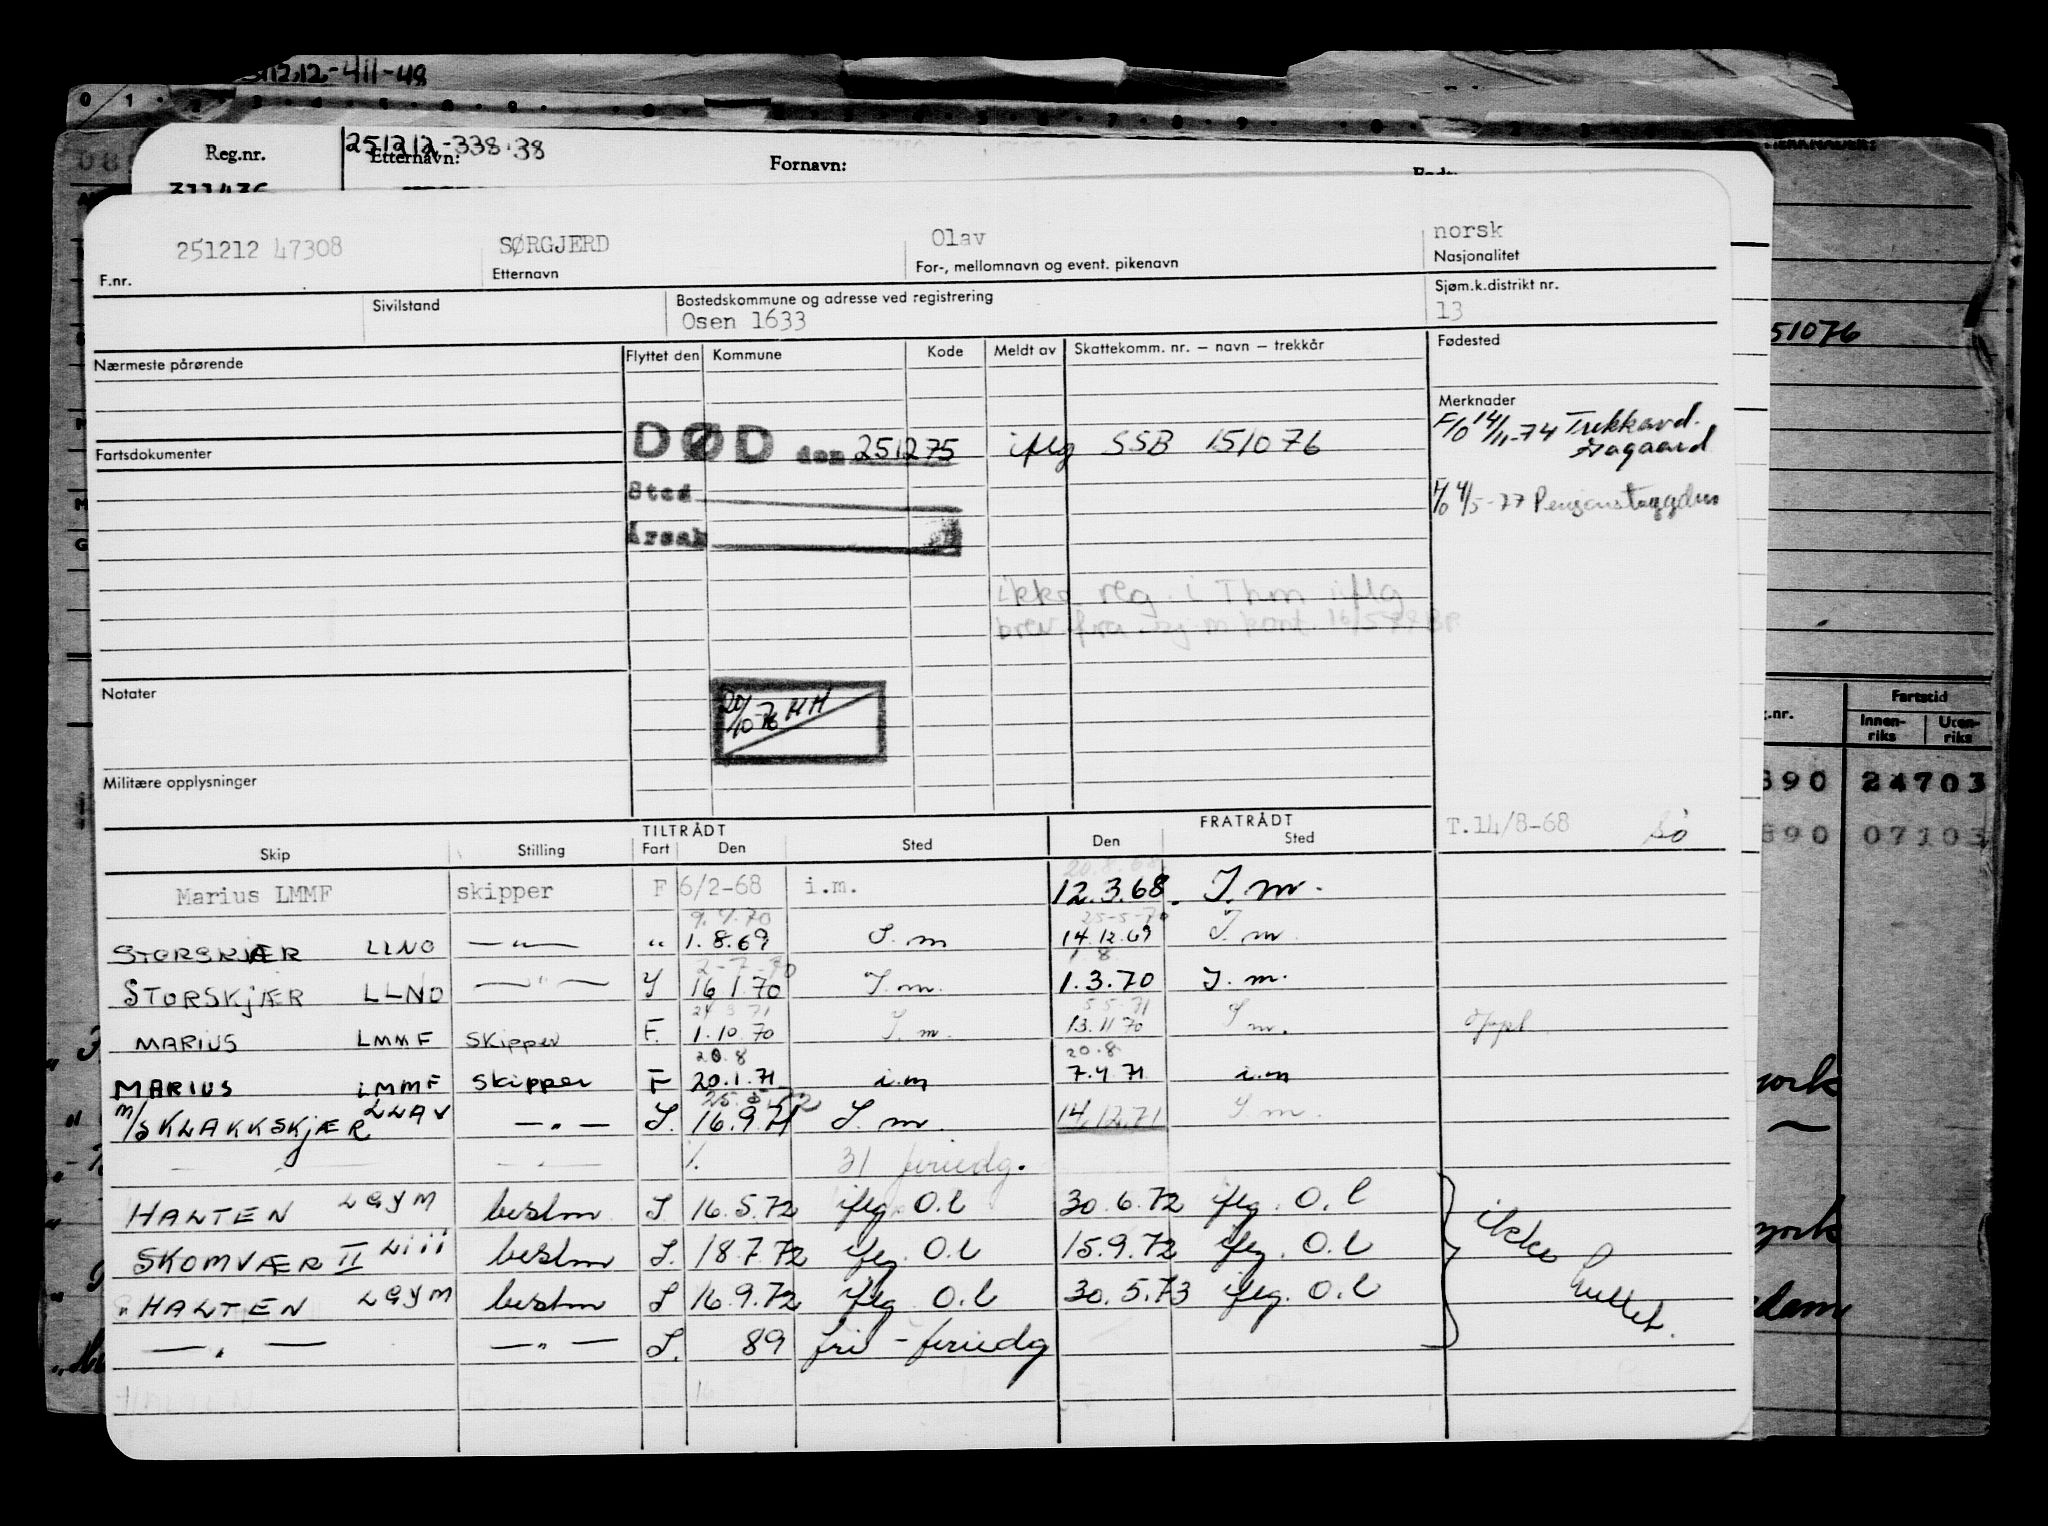 251212-411-48
Reg.nr.
251212-338.38
Etternavn:
Fornavn:
251212 47308
SØRGJERD
Olav
norsk
F.nr.
Etternavn
For-, mellomnavn og event. pikenavn
Nasjonalitet
Sivilstand
Bostedskommune og adresse ved registrering
Sjøm.k.distrikt nr.
Osen 1633
13
Nærmeste pårørende
Flyttet den
Kommune
Kode
Meldt av
Skattekomm. nr. – navn – trekkår
Fødested
Merknader
F/O 14/11-74 Trekkavd.
Fartsdokumenter
DØD den 251275 iflg SSB 151076
Sted
Årsak
F/O 4/5-77 Pensjonstrygden
ikke reg. i Thm iflg
brev fra
Notater
20/10-76 HH
Militære opplysninger
TILTRÅDT
FRATRÅDT
T.14/8-68
Skip
Stilling
Fart
Den
Sted
Den
Sted
20.8.68
Marius LMMF skipper F 6/2-68 i.m. 12.3.68. I.m.
9.7.70 25-5-70
STORSKJÆR LLNO —〃— 〃 1.8.69 I.m 14.12.69 I.m.
2-7-70 1.8
STORSKJÆR LLNO —〃— I 16 1.70 I.m. 1.3.70 I.m.
24 3 71 5.5.71
MARIUS LMMF Skipper F. 1.10.70 I.m. 13.11 70 I.m. Oppl
20.8 20.8
MARIUS LMMF Skipper F 20.1.71 i.m 7.4.71 i.m
M/SKLAKKSKJÆR LLAV —〃— I. 16.9.71 I.m. 14.12.71 I.m.
— — —〃— 31 feriedg.
HALTEN LGYM bestm I. 16.5.72 iflg O.l 30.6.72 iflg. O.l
SKOMVÆR II Liii bestm I. 18.7.72 iflg. O.l 15.9.72 iflg. O.l
HALTEN LGYM bestm I 16.9.72 iflg. O.l 30.5.73 iflg. O.l
—〃— —〃— I. 89 fri-feriedg
ikke hullet.
51076
Fartstid
Innen-riks
Uten-riks
390 24703
390 07103